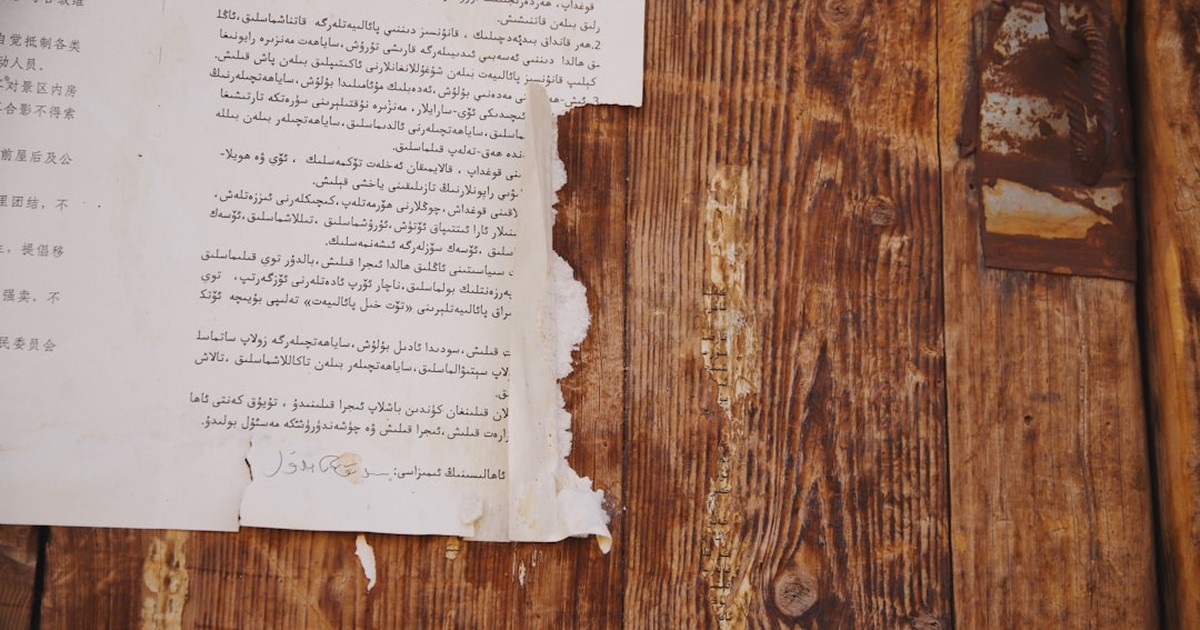 自觉抵制各类
动人员。
对景区内房
合影不得索
前屋后及公
里团结，不
，提倡移
强卖，不
民委员会
رلىق بىلەن قاتنىشىش.
2.ھەر قانداق بىدئەتچىلىك ، قانۇنسىز دىننىي پائالىيەتلەرگە قاتناشماسلىق،ئاڭلا
ىق ھالدا دىننىي ئەسەبىي ئىدىيىلەرگە قارشى تۇرۇش،ساياھەت مەنزىرە رايونىغا
كېلىپ قانۇنسىز پائالىيەت بىلەن شۇغۇللانغانلارنى ئاكتىپلىق بىلەن پاش قىلىش.
نى مەدەنىي بولۇش،ئەدەپلىك مۇئامىلىدا بولۇش،ساياھەتچىلەرنىڭ
ئىچىدىكى ئۆي-سارايلار، مەنزىرە نۇقتىلىرىنى سۈرەتكە تارتىشىغا
ماسلىق،ساياھەتچىلەرنى ئالدىماسلىق،ساياھەتچىلەر بىلەن بىللە
ىندە ھەق-تەلەپ قىلماسلىق.
ىنى قوغداپ ، قالايمىقان ئەخلەت تۆكمەسلىك ، ئۆي ۋە ھويلا-
رايونلارنىڭ تازىلىقىنى ياخشى قىلىش.
لاقىنى قوغداش،چوڭلارنى ھۆرمەتلەپ،كىچىكلەرنى ئىززەتلەش،
ئارا ئىتتىپاق ئۆتۈش،ئۇرۇشماسلىق ،تىللاشماسلىق،ئۆسەك
ىسلىق ،ئۆسەك سۆزلەرگە ئىشەنمەسلىك.
سىياسىتىنى ئاڭلىق ھالدا ئىجرا قىلىش،بالدۇر توي قىلىماسلىق
پەرزەنتلىك بولماسلىق،ناچار ئۆرپ ئادەتلەرنى ئۆزگەرتىپ، توي
ىراق پائالىيەتلىرىنى «تۆت خىل پائالىيەت» تەلىپى بويىچە ئۆتك
ت قىلىش،سودىدا ئادىل بولۇش،ساياھەتچىلەرگە زولاپ ساتماسل
ولاپ سېتىۋالماسلىق،ساياھەتچىلەر بىلەن تاكاللاشماسلىق ،تالاش
ىق.
لان قىلىنغان كۈندىن باشلاپ ئىجرا قىلىنىدۇ ، تۇيۇق كەنتى ئاھا
زارەت قىلىش،ئىجرا قىلىش ۋە چۈشەندۈرۈشكە مەسئۇل بولىدۇ.
ئاھالىسىنىڭ ئىمزاسى: